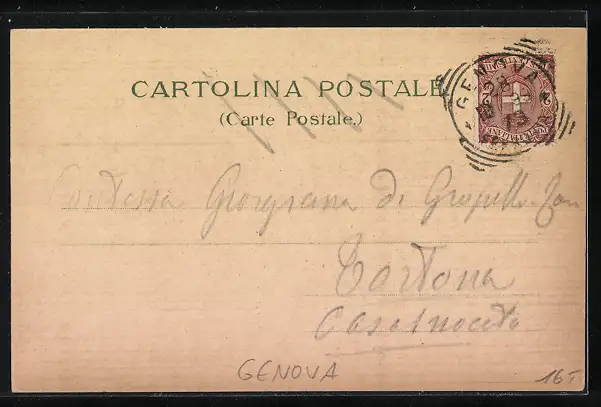 CARTOLINA POSTALE
(Carte Postale.)
GENOVA
Contessa Giorgiana di Gropello
Tortona
Casalnoceto
GENOVA
16